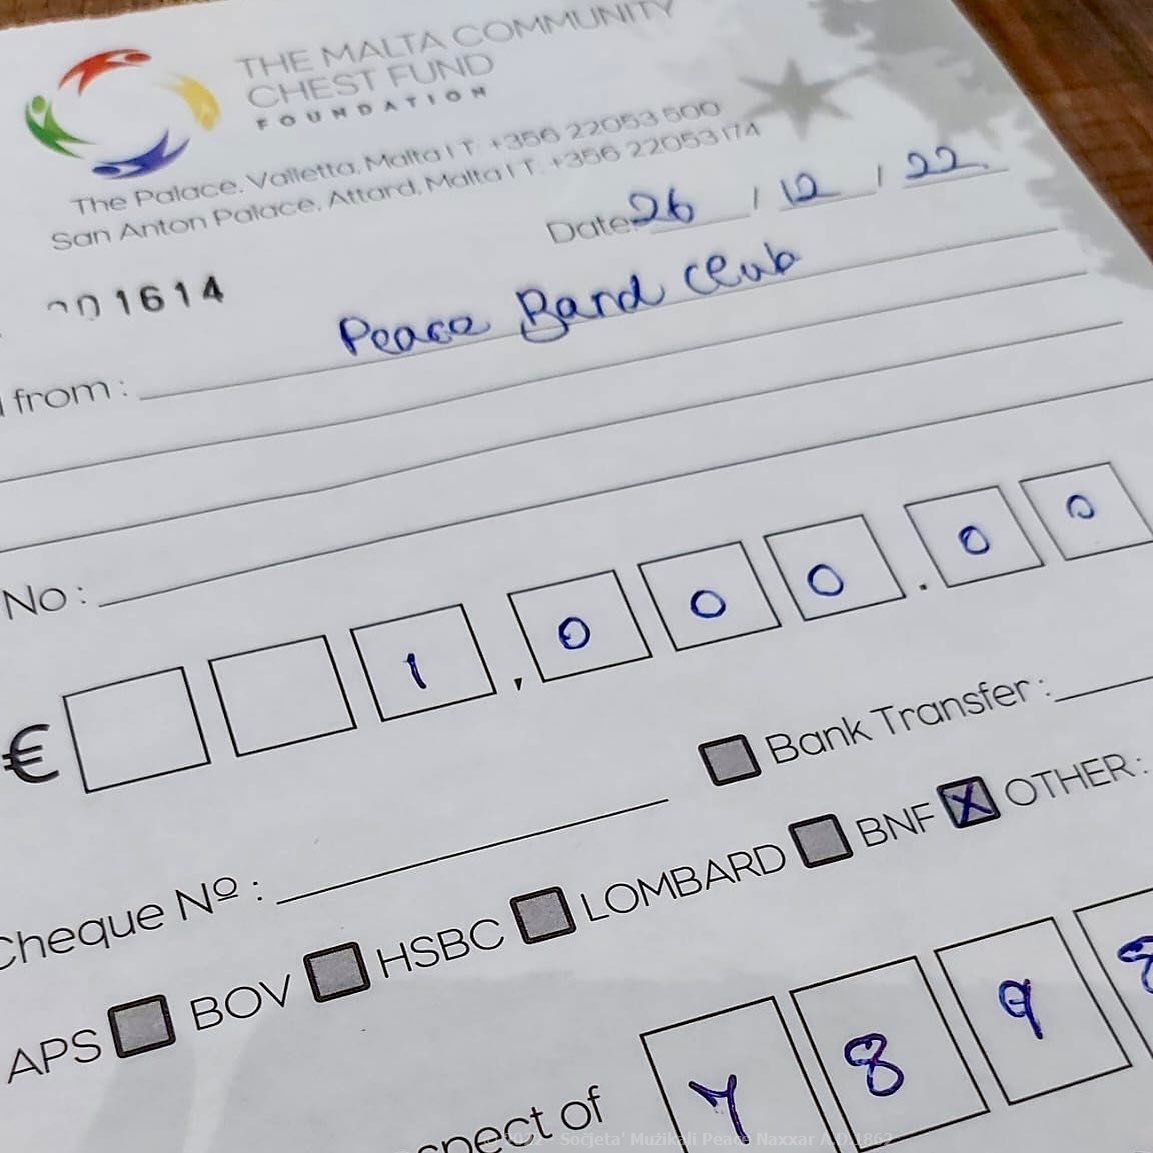 THE MALTA COMMUNITY
CHEST FUND
FOUNDATION
The Palace, Valletta, Malta | T: +356 22053 500
San Anton Palace, Attard, Malta | T: +356 22053174
Date: 26 / 12 / 22.
1614
Peace Band Club
from:
No:
€ 1,000.00
Bank Transfer:
Cheque Nº:
APS BOV HSBC LOMBARD BNF X OTHER:
of 7 8 9 8
Soċjeta' Mużikali Peace Naxxar A.D.1862